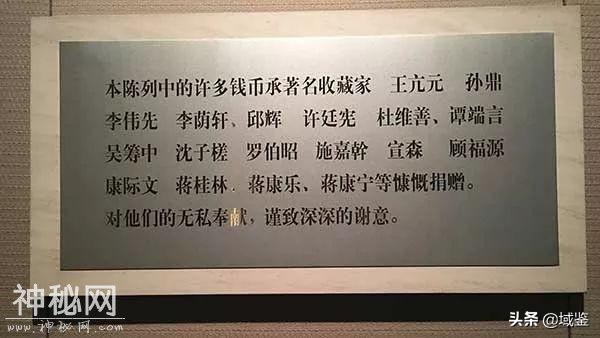 本陈列中的许多钱币承著名收藏家　王亢元　孙鼎
李伟先　李荫轩、邱辉　许廷宪　杜维善、谭端言
吴筹中　沈子槎　罗伯昭　施嘉幹　宣森　顾福源
康际文　蒋桂林、蒋康乐、蒋康宁等慷慨捐赠。
对他们的无私奉献，谨致深深的谢意。
神秘网
www.神秘网.com
头条 @域鉴